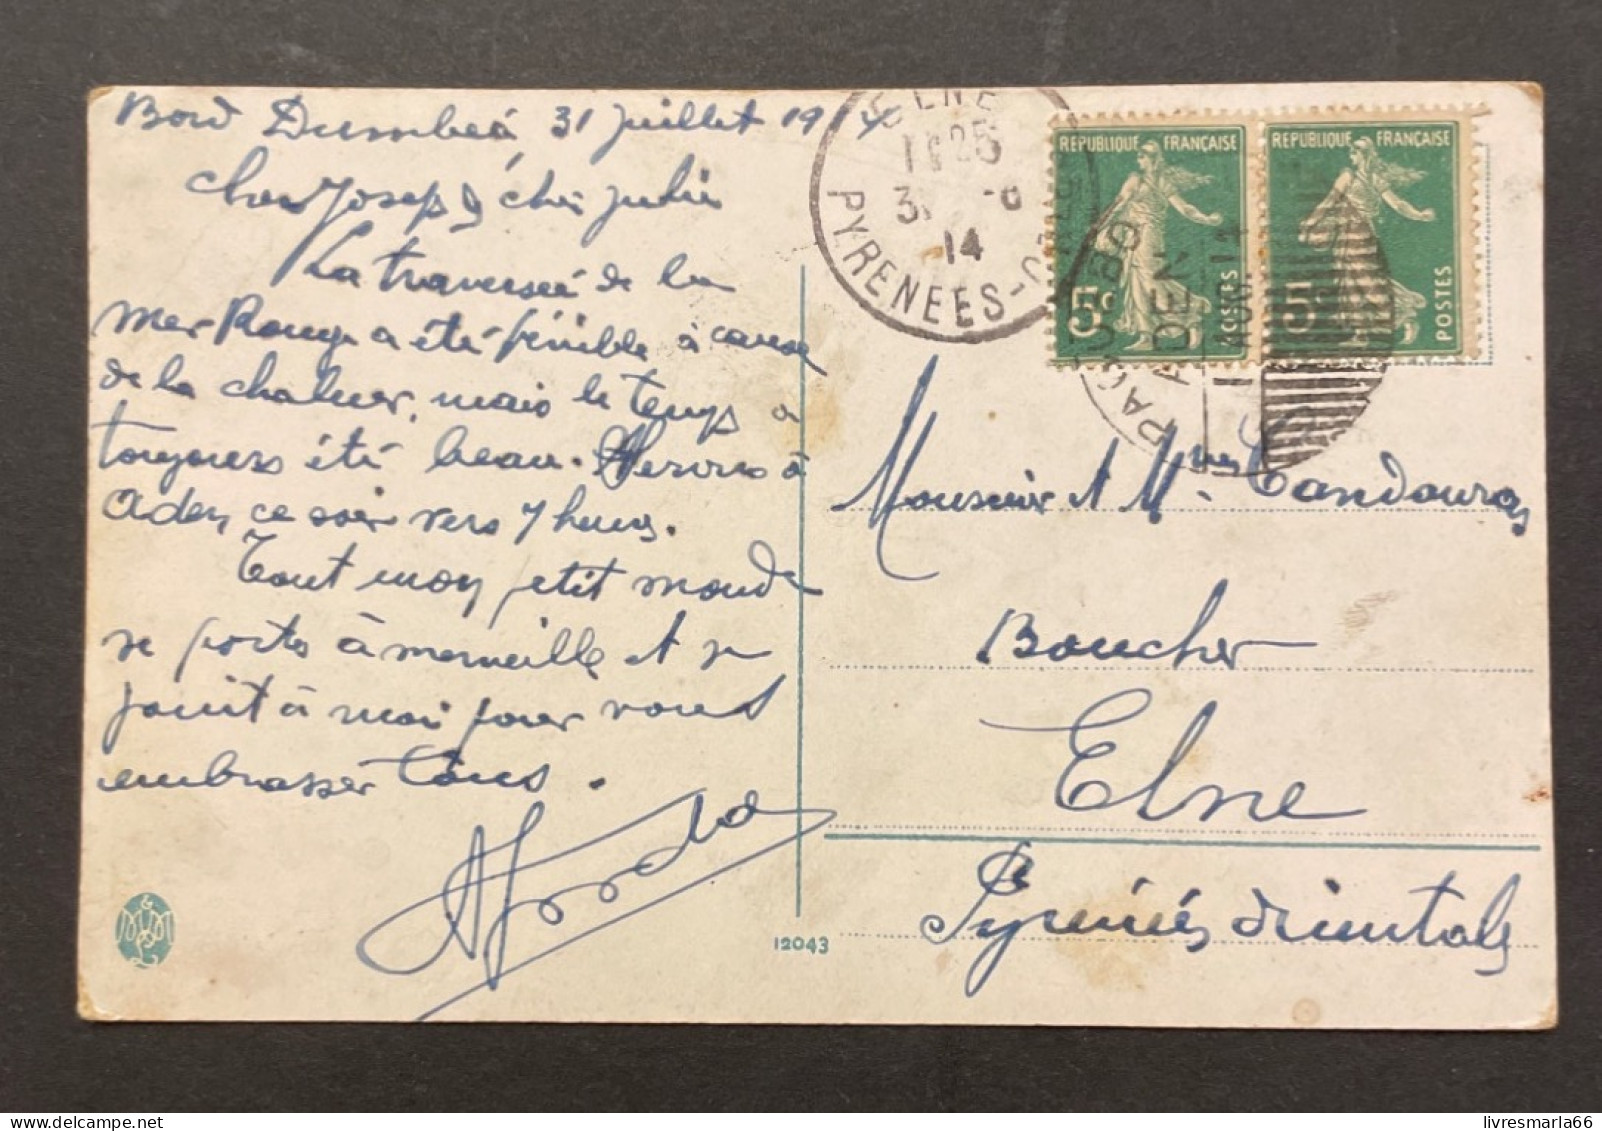 Bord Dumbéa 31 Juillet 1914
cher Joseph, chère Julie
La traversée de la
mer Rouge a été pénible à cause
de la chaleur, mais le temps a
toujours été beau. Serons à
Aden ce soir vers 7 heures.
Tout mon petit monde
se porte à merveille et se
joint à moi pour vous
embrasser tous.
ELNE
25
14
PYRENEES-O
REPUBLIQUE FRANÇAISE
5c
POSTES
REPUBLIQUE FRANÇAISE
5c
POSTES
PAQUEBOT
ADEN
AUG. 14
Monsieur et Mme
Boucher
Elne
Pyrénées Orientales
12043
livresmarla66